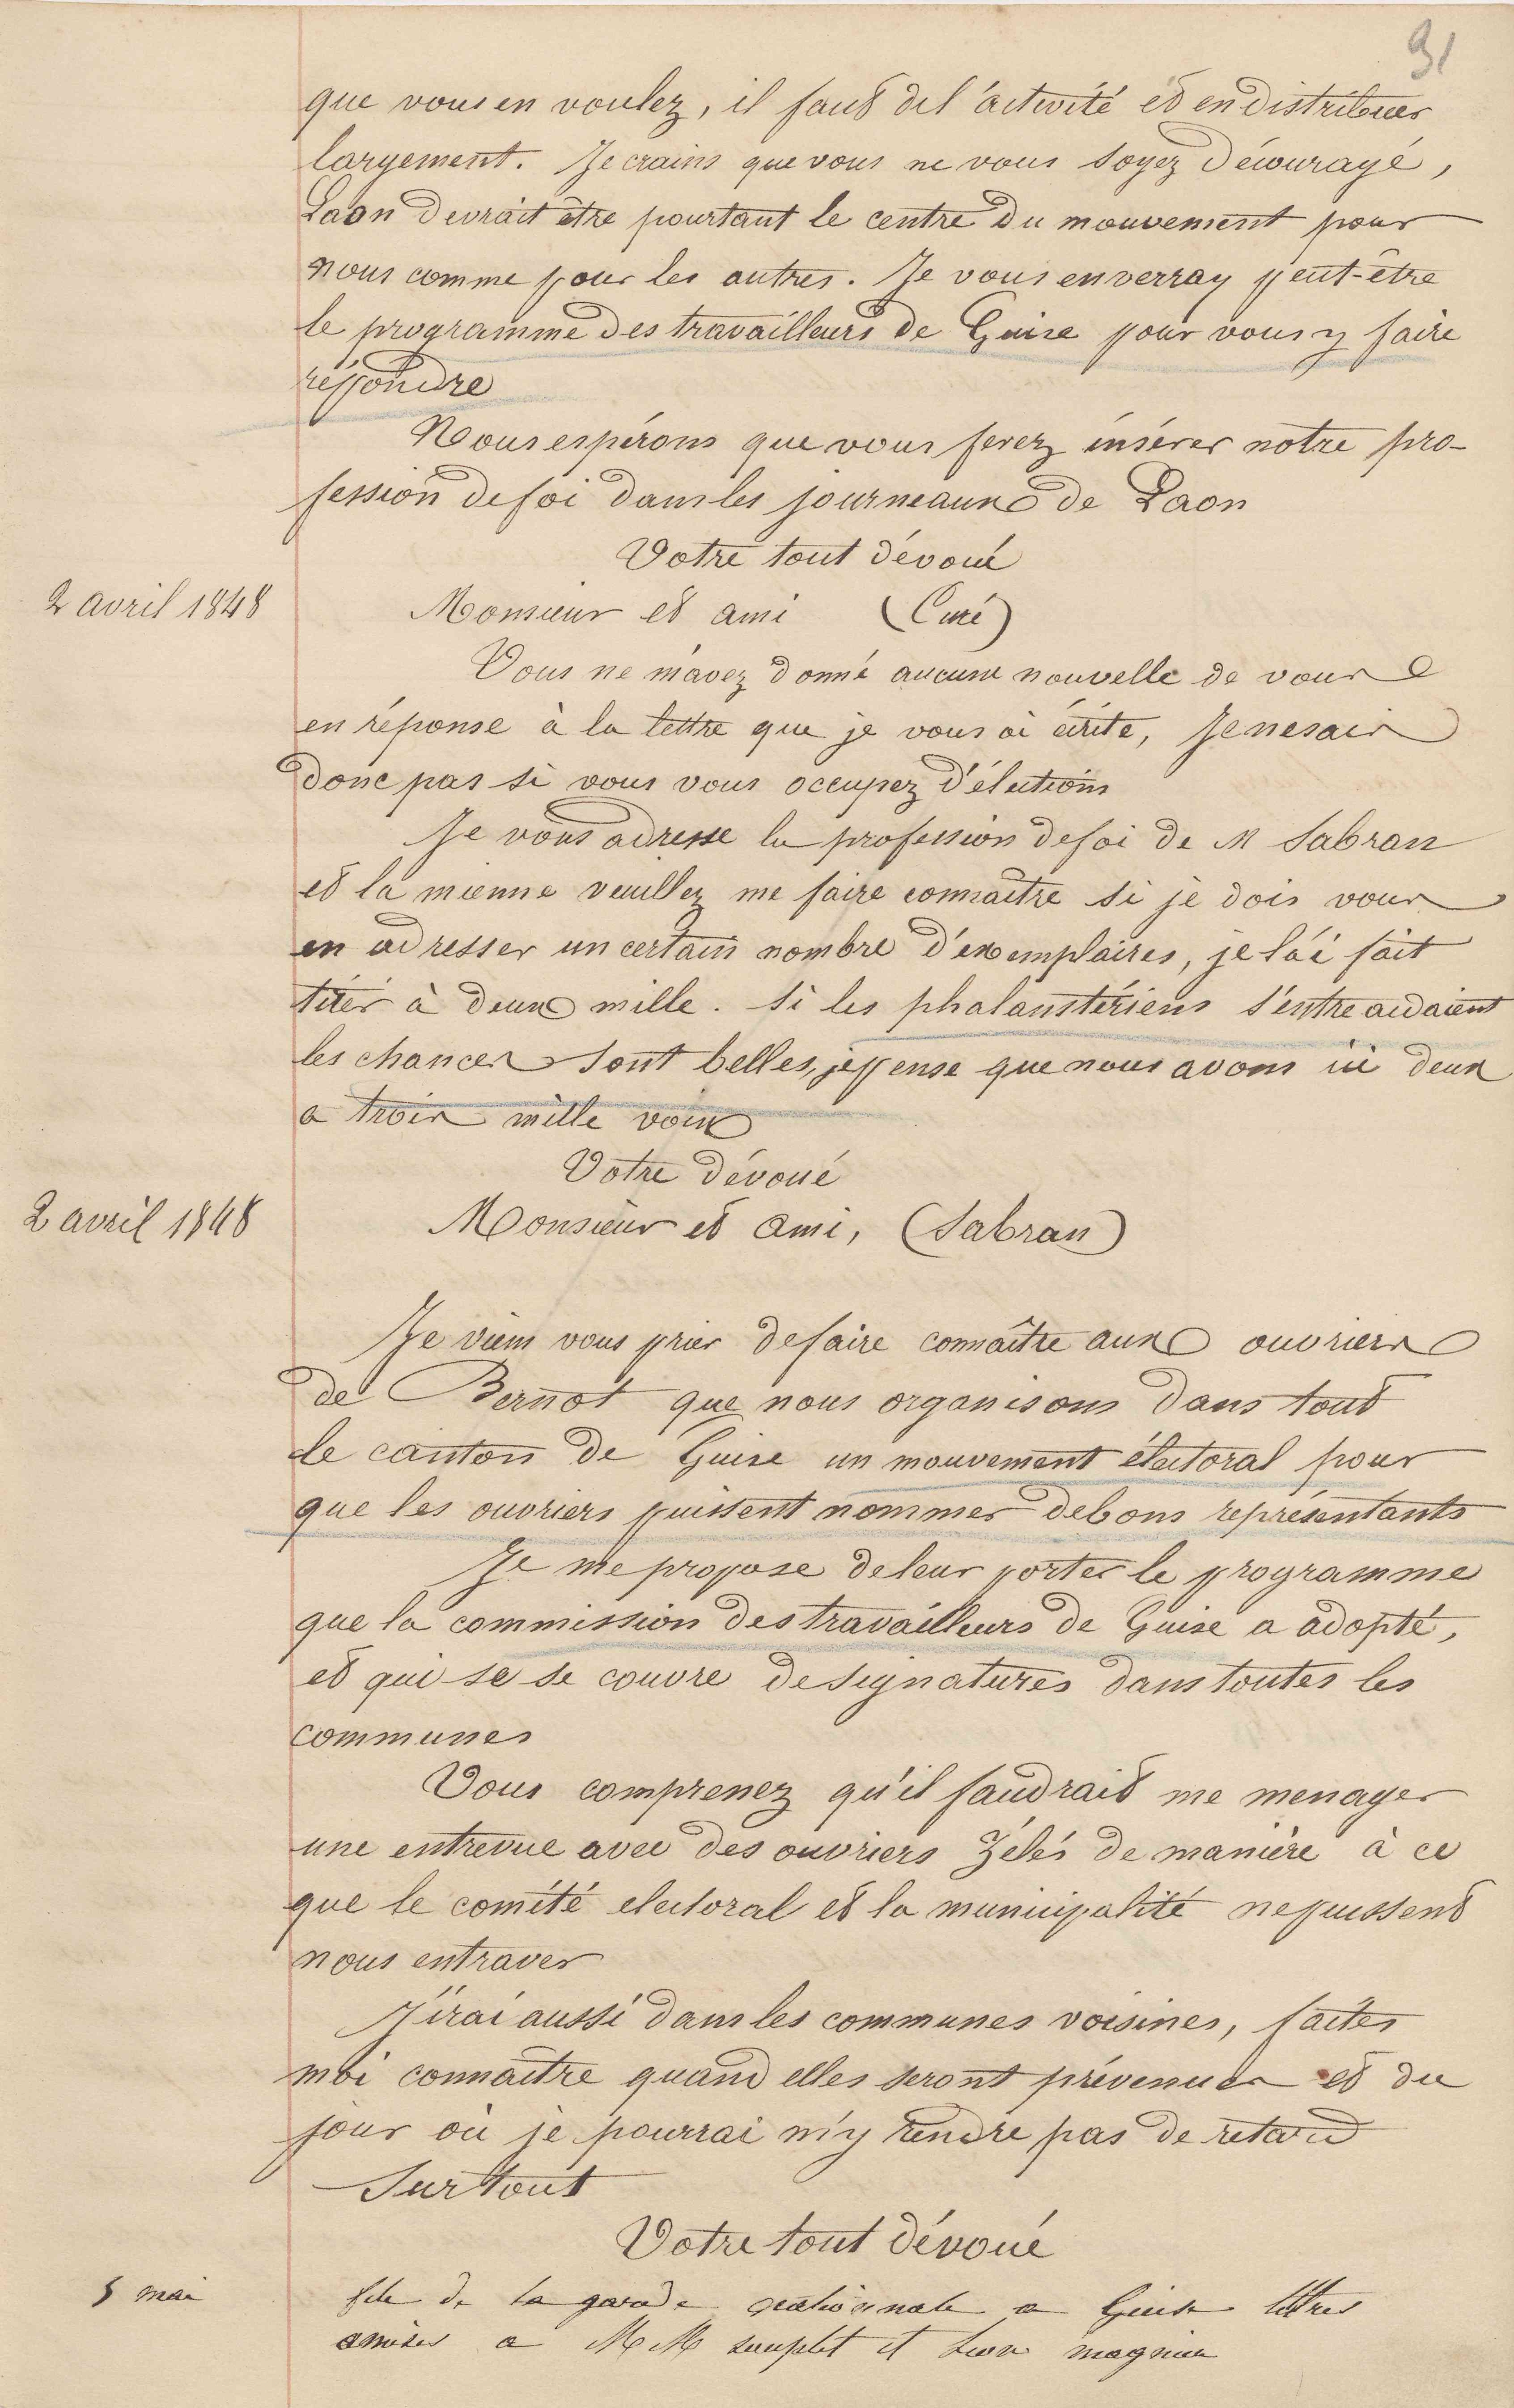 31
que vous en voulez, il faut del'activité et en distribuer
largement. Je crains que vous ne vous soyez découragé,
Laon devrait être pourtant le centre du mouvement pour
nous comme pour les autres. Je vous enverray peut-être
le programme des travailleurs de Guise pour vous y faire
répondre
Nous espérons que vous ferez insérer notre pro-
fession de foi dans les journeaux de Laon
Votre tout dévoué
2 avril 1848
Monsieur et ami (Curé)
Vous ne m'avez donné aucune nouvelle de vous
en réponse à la lettre que je vous ai écrite, Je ne sais
donc pas si vous vous occupez d'élections
Je vous adresse la profession de foi de M Sabran
et la mienne veuillez me faire connaître si je dois vous
en adresser un certain nombre d'exemplaires, je l'ai fait
tirer à deux mille. Si les phalanstériens s'entre aidaient
les chances sont belles, je pense que nous avons ici deux
a trois mille voix
Votre dévoué
2 avril 1848
Monsieur et ami, (Sabran)
Je viens vous prier de faire connaître aux ouvriers
de Bernot que nous organisons dans tout
le canton de Guise un mouvement électoral pour
que les ouvriers puissent nommer de bons représentants
Je me propose de leur porter le programme
que la commission des travailleurs de Guise a adopté,
et qui se se couvre de signatures dans toutes les
communes
Vous comprenez qu'il faudrait me menager
une entrevue avec des ouvriers zélés de manière à ce
que le comité electoral et la municipalité ne puissent
nous entraver
J'irai aussi dans les communes voisines, faites
moi connaître quand elles seront prévenues et du
jour où je pourrai m'y rendre pas de retard
Surtout
Votre tout dévoué
5 mai
fete de la garde nationale a Guise lettres
a MM souplet et magnier